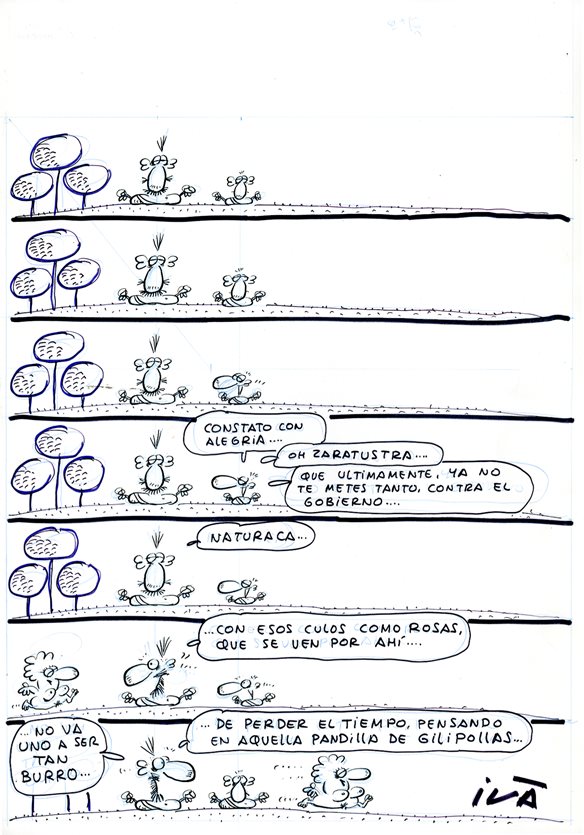 CONSTATO CON
ALEGRIA....
OH ZARATUSTRA....
QUE ULTIMAMENTE, YA NO
TE METES TANTO, CONTRA EL
GOBIERNO....
NATURACA...
...CON ESOS CULOS COMO ROSAS,
QUE SE VEN POR AHÍ....
...NO VA
UNO A SER
TAN
BURRO...
... DE PERDER EL TIEMPO, PENSANDO
EN AQUELLA PANDILLA DE GILIPOLLAS...
IVÀ